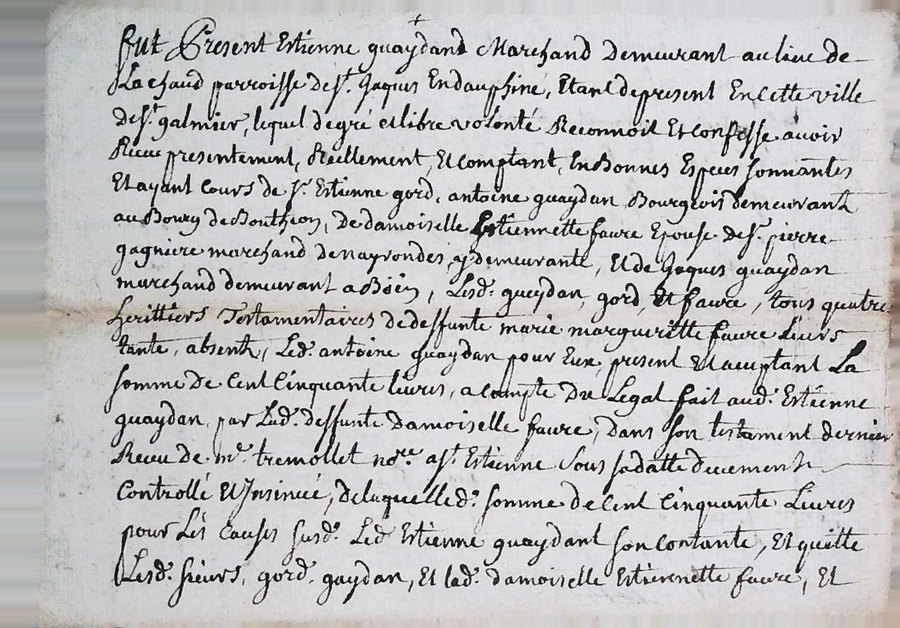 fut Present Estienne guaydand Marchand Demeurant au lieu de
La chaud parroisse de st. Jaques En dauphiné, Etant de present En cette ville
de st. galmier, lequel de gré et libre volonté Reconnoit Et confesse avoir
Receu presentement, Réellement, Et comptant, En Bonnes Especes sonnantes
Et ayant Cours de sr. Estienne gord, antoine guaydan Bourgeois demeurants
au Bourg de Bouthéon, De damoiselle Estiennette faure Epouse de sr. pierre
gagniere marchand de nayrondes, y demeurante, Et de Jaques guaydan
marchand demeurant a Böën, Lesd. gueydan, gord, Et faure, tous quatre
heritties Testamentaires de deffunte marie margueritte faure Leurs
tante, absents, Led. antoine guaydan pour Eux, present Et aceptant La
somme de Cent Cinquante livres, a compte du Legat fait aud. Estienne
guaydan par Lad. deffunte damoiselle faure, dans son testament dernier
Receu de me. tremollet nore. a st. Estienne sous sa datte deuement
Controllé Et Insinué, De laquelle d. somme de Cent Cinquante Livres
pour Les Causes susd. Led. Estienne guaydant son contante, Et quitte
Lesd. sieurs, gord, gaydan, Et lad. damoiselle Estienette faure, Et